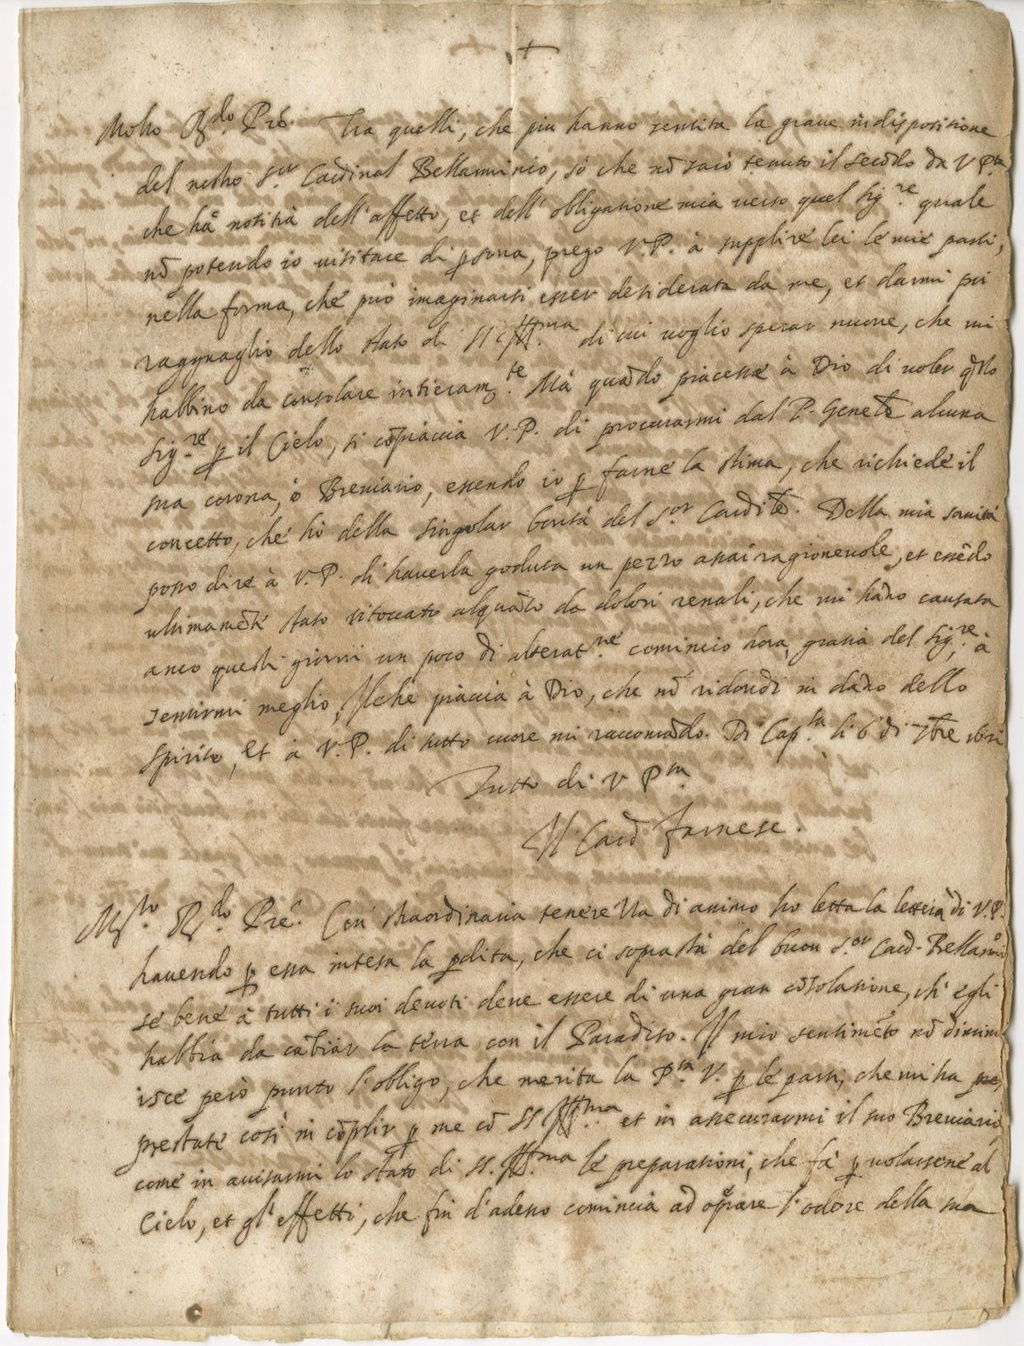 +
Molto R.do Pre. Tra quelli, che piu hanno sentita la graue indispositione
del nostro s.or Cardinal Bellarminio, sò che nõ sarò tenuto il secõdo da V P.tà
che hà notitia dell'affetto, et dell'obligatione mia uerso quel Sig.re quale
nõ potendo io uisitare di psona, prego V.P. à supplire lei le mie parti,
nella forma, che può imaginarsi esser desiderata da me, et darmi poi
ragguaglio dello stato di SS Ill.ma di cui uoglio sperar nuoue, che mi
habbino da consolare intieram.te Mà quãdo piacesse à Dio di uoler q̃sto
Sig.re p il Cielo, si cõpiaccia V.P. di procurarmi dal P. Genele alcuna
sua corona, ò Breuiario, essendo io p farne la stima, che richiede il
concetto, che hò della singolar bontà del s.or Cardile. Della mia sanità
posso dire à V.P. di hauerla goduta un pezzo assai ragioneuole, et essẽdo
ultimamẽte stato ritoccato alquãto da dolori renali, che mi hãno causata
anco questi giorni un poco di alterat.ne comincio hora, gratia del Sig.re, à
sentirmi meglio, Il che piaccia à Dio, che nõ ridondi in dãno dello
spirito, Et à V.P. di tutto cuore mi raccomãdo. Di Cap.la li 6 di 7bre 1621
Tutto di V P.tà
Il Card Farnese.
M.to R.do Pre. Con straordinaria tenerezza di animo ho letta la lettera di V.P.
hauendo p essa intesa la pdita, che ci soprastà del buon s.or Card. Bellarm.o
se bene à tutti i suoi deuoti deue essere di una gran cõsolatione, ch'egli
habbia da cãbiar la terra con il Paradiso. Il mio sentimẽto nõ diminu
isce però punto l'obligo, che merita la P.tà V. p le parti, che mi ha
prestate così in cõplir p me cõ SS Ill.ma et in assecurarmi il suo Breuiario,
come in auisarmi lo stato di SS. Ill.ma le preparationi, che fà p uolarsene al
Cielo, et gl'effetti, che fin d'adesso comincia ad oprare l'odore della sua